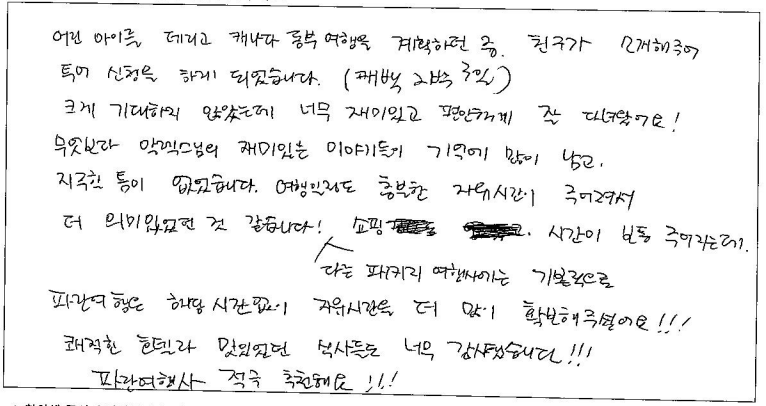 어린 아이를 데리고 캐나다 동부 여행을 계획하던 중, 친구가 소개해주어
투어 신청을 하게 되었습니다. (퀘백 2박 3일)
크게 기대하지 않았는데 너무 재미있고 편안하게 잘 다녀왔어요!
무엇보다 알렉스님의 재미있는 이야기들이 기억에 많이 남고,
지루한 틈이 없었습니다. 여행일정도 충분한 자유시간이 주어져서
더 의미있었던 것 같습니다! 쇼핑 시간이 보통 주어지는데,
다른 패키지 여행사에는 기본적으로
파란여행은 해당 시간 없이 자유시간을 더 많이 확보해주셨어요!!!
쾌적한 호텔과 맛있었던 식사들도 너무 감사했습니다!!!
파란여행사 적극 추천해요!!!